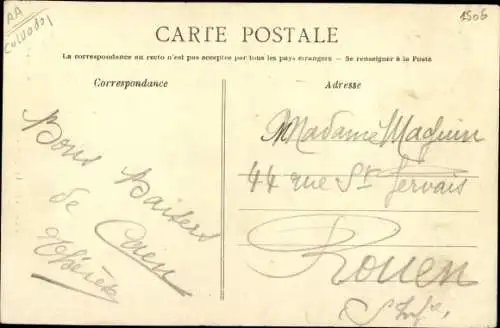 AA
Calvados
1506
CARTE POSTALE
La correspondance au recto n'est pas acceptée par tous les pays étrangers — Se renseigner à la Poste
Correspondance
Adresse
Bons Baisers
de Caen
Madame
44 rue St Gervais
Rouen